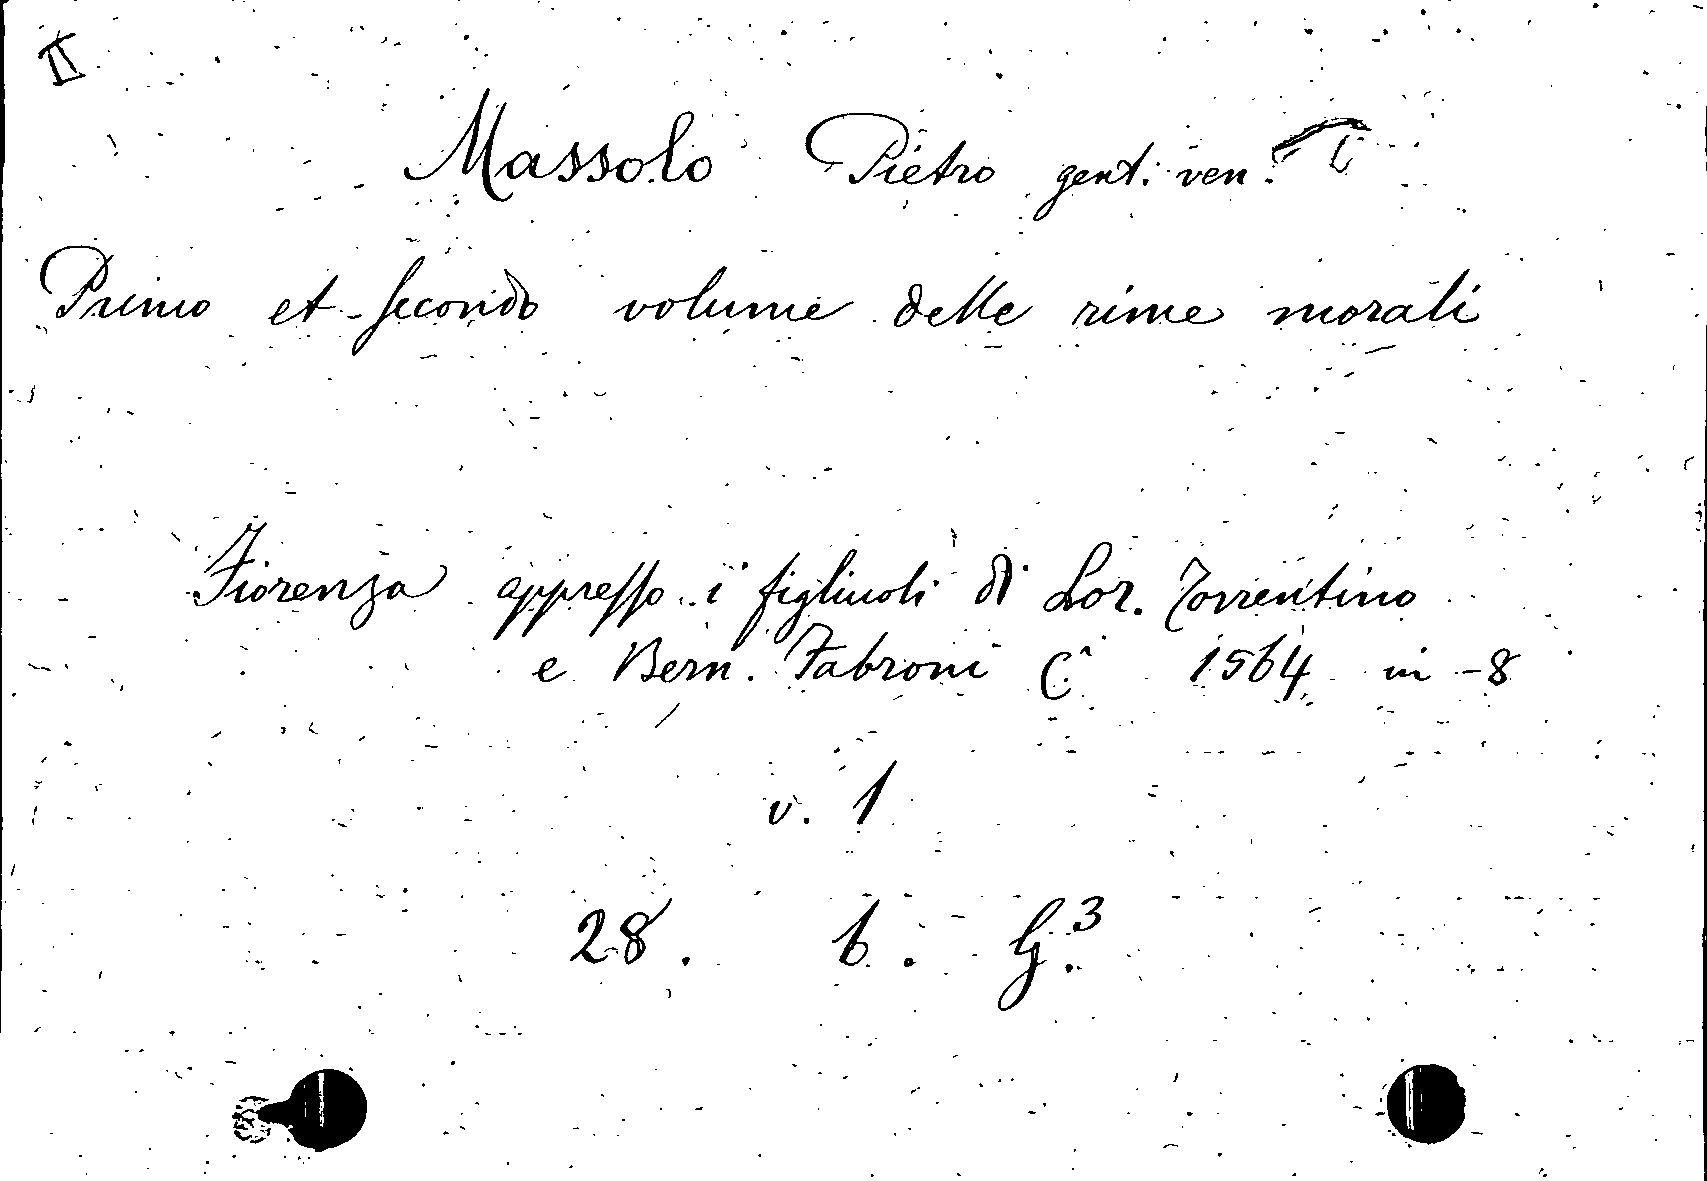 II
Massolo Pietro gent. ven.
Primo et secondo volume delle rime morali
Fiorenza appresso i figliuoli di Lor. Torrentino
e Bern. Fabroni C.i 1564 in-8
v. 1
28. 6. G.3